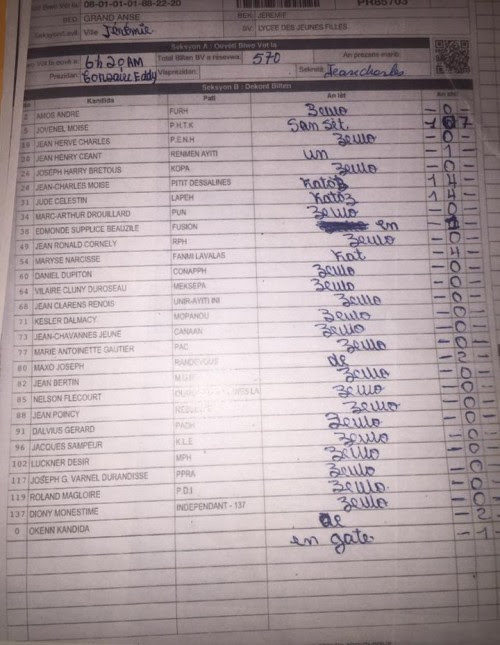 08-01-01-01-88-22-20 PH85703
BED: GRAND ANSE BEK: JEREMIE
Ville Jérémie SV: LYCEE DES JEUNES FILLES
Seksyon A : Ouvèti Biwo Vòt la
6h20AM Total Bilten BV a resevwa: 570
Prezidan: Eddy Visprezidan: Sekretè: Jeancharles
Seksyon B : Dekont Bilten
Kandida Pati An lèt An chif
2 AMOS ANDRE FURH Zewo - 0
5 JOVENEL MOISE P.H.T.K San sèt 1 0 7
JEAN HERVE CHARLES P.E.N.H Zewo - - 0
20 JEAN HENRY CEANT RENMEN AYITI un - - 1
26 JOSEPH HARRY BRETOUS KOPA Zewo - - 0
28 JEAN-CHARLES MOISE PITIT DESSALINES Katòz - 1 4
31 JUDE CELESTIN LAPEH Katòz - 1 4
34 MARC-ARTHUR DROUILLARD PUN Zewo - - 0
38 EDMONDE SUPPLICE BEAUZILE FUSION en - - 1
49 JEAN RONALD CORNELY RPH Zewo - - 0
54 MARYSE NARCISSE FANMI LAVALAS Kat - - 4
60 DANIEL DUPITON CONAPPH Zewo - - 0
64 VILAIRE CLUNY DUROSEAU MEKSEPA Zewo - - 0
68 JEAN CLARENS RENOIS UNIR-AYITI INI Zewo - - 0
71 KESLER DALMACY MOPANOU Zewo - - 0
73 JEAN-CHAVANNES JEUNE CANAAN Zewo - - 0
77 MARIE ANTOINETTE GAUTIER PAC Zewo - - 0
80 MAXO JOSEPH RANDEVOUS de - - 2
82 JEAN BERTIN Zewo - - 0
85 NELSON FLECOURT Zewo - - 0
88 JEAN POINCY Zewo - - 0
91 DALVIUS GERARD PADH Zewo - - 0
96 JACQUES SAMPEUR K.L.E Zewo - - 0
102 LUCKNER DESIR MPH Zewo - - 0
117 JOSEPH G. VARNEL DURANDISSE PPRA Zewo - - 0
119 ROLAND MAGLOIRE P.D.I Zewo - - 0
137 DIONY MONESTIME INDEPENDANT - 137 Zewo - - 0
0 OKENN KANDIDA de - - 2
en gate - 1